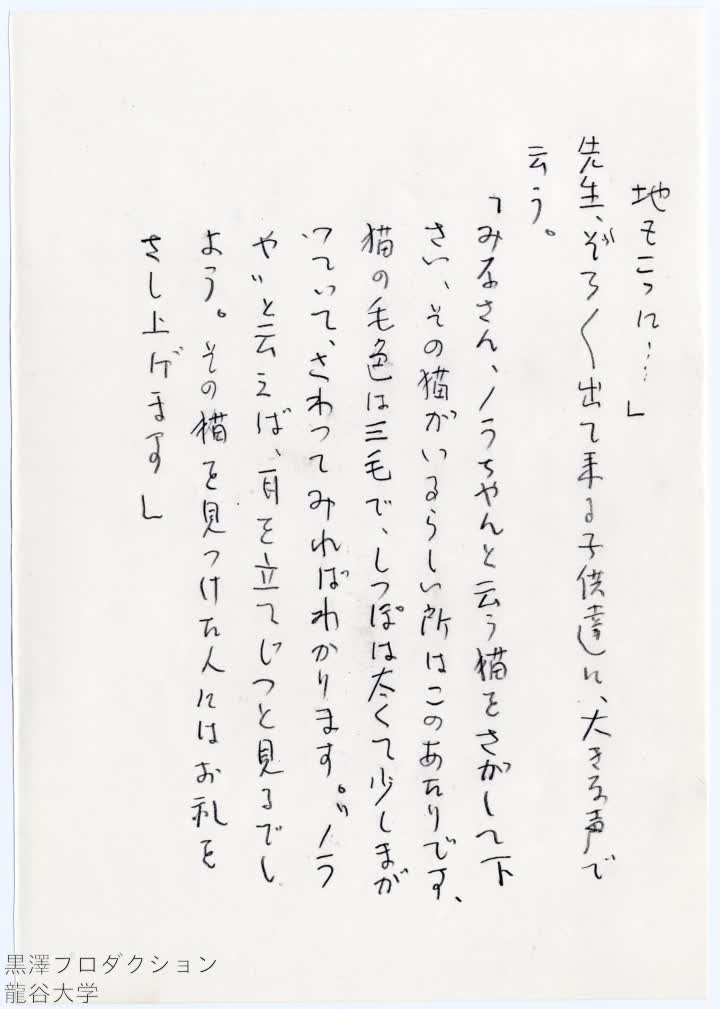 地もこっに…」
先生、ぞろ〱出て来る子供達に、大きな声で
云う。
「みなさん、ノラちゃんと云う猫をさがして下
さい、その猫がいるらしい所はこのあたりです、
猫の毛色は三毛で、しっぽは太くて少しまが
っていて、さわってみればわかります。〝ノラ
や〟と云えば、耳を立てじっと見るでし
ょう。その猫を見つけた人にはお礼を
さし上げます」
黒澤プロダクション
龍谷大学